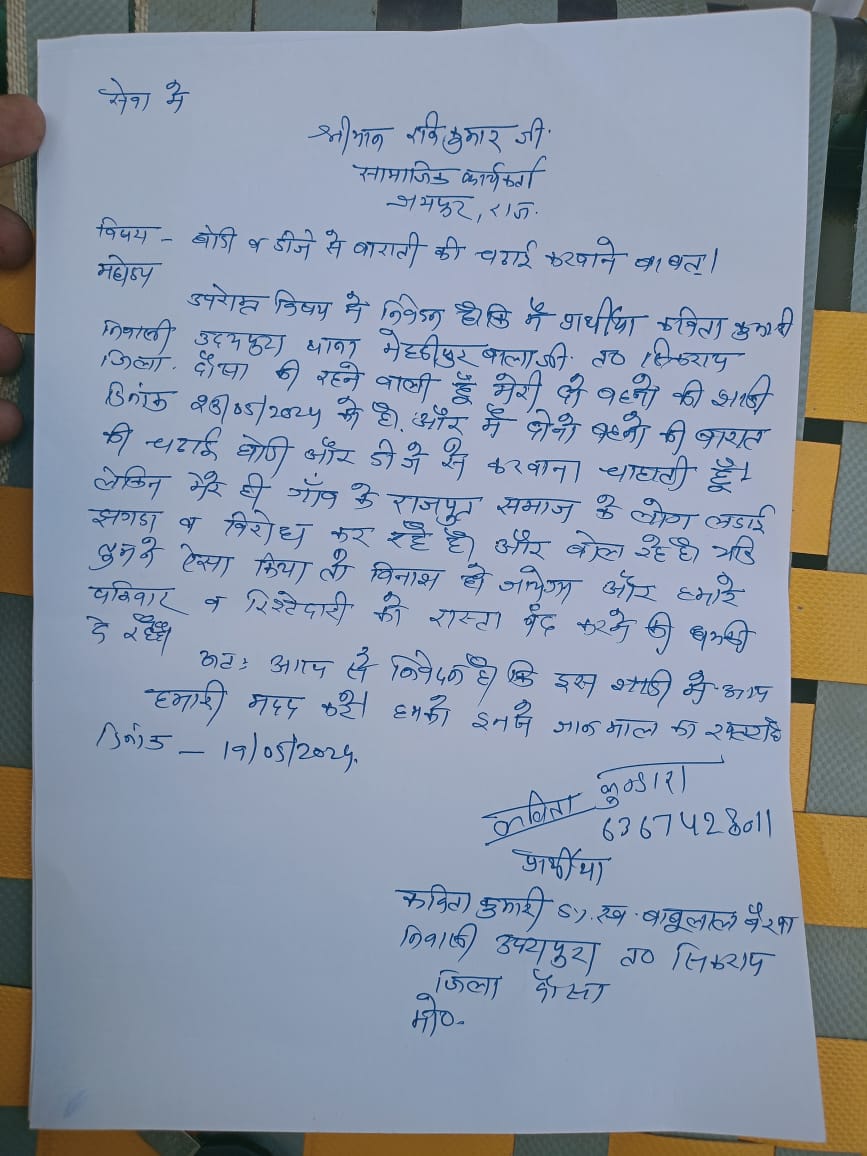 सेवा में
श्रीमान रविकुमार जी.
सामाजिक कार्यकर्ता
जयपुर, राज.
विषय - घोडी व डीजे से बारातो की चढाई करवाने बाबत्।
महोदय
उपरोक्त विषय में निवेदन है कि मैं प्रार्थीया कविता कुमारी
निवासी उदयपुरा थाना मेहंदीपुर बालाजी त० सिकराय
जिला. दौसा की रहने वाली हूँ मेरी दो बहनो की शादी
दिनांक /05/2024 को है. और मैं दोनो बहनो की बारात
की चढाई घोडी और डी जे से करवाना चाहाती हूँ।
लेकिन मेरे ही गाँव के राजपुत समाज के लोग लडाई
झगडा व विरोध कर रहे है। और बोल रहे है। यदि
तुमने ऐसा किया तो विनाश हो जायेगा और हमारे
परिवार व रिश्तेदारो को रास्ता बंद करने की धमकी
दे रहे है।
अतः आप से निवेदन है। कि इस शादी में आप
हमारी मदद करे। हमको इनसे जान माल का खतरा है
दिनांक - 19/05/2024.
कविता कुमारी
6367428011
प्रार्थीया
कविता कुमारी D/. स्व. बाबूलाल बैरवा
निवासी उदयपुरा त० सिकराय
जिला दौसा
मो०-